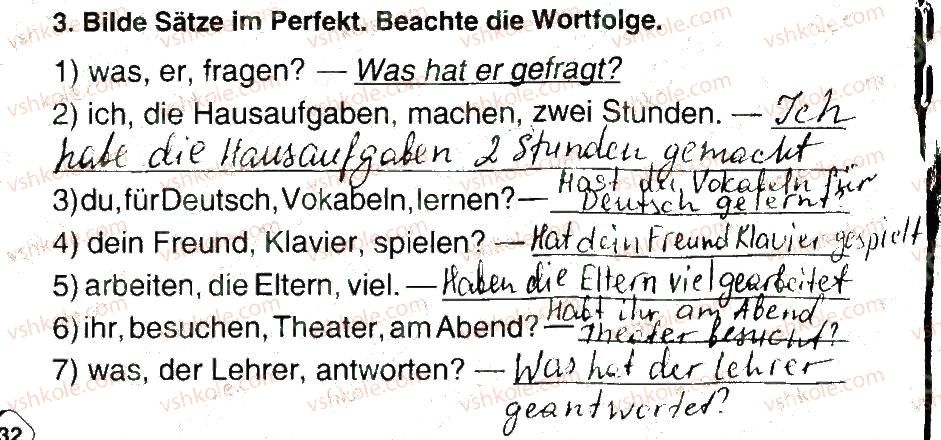 3. Bilde Sätze im Perfekt. Beachte die Wortfolge.
1) was, er, fragen? — Was hat er gefragt?
2) ich, die Hausaufgaben, machen, zwei Stunden. — Ich
habe die Hausaufgaben 2 Stunden gemacht
3) du, für Deutsch, Vokabeln, lernen? — Hast du Vokabeln für
Deutsch gelernt?
4) dein Freund, Klavier, spielen? — Hat dein Freund Klavier gespielt
5) arbeiten, die Eltern, viel. — Haben die Eltern viel gearbeitet
6) ihr, besuchen, Theater, am Abend? — Habt ihr am Abend
Theater besucht?
7) was, der Lehrer, antworten? — Was hat der lehrer
geantwortet?
32